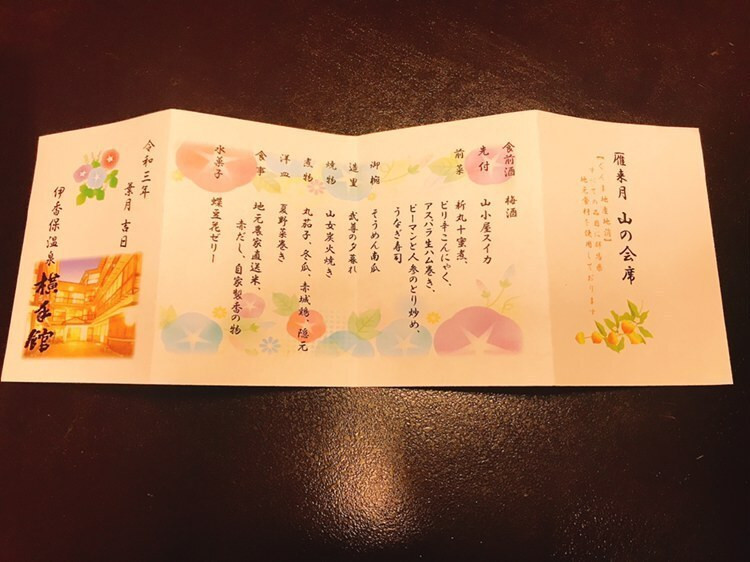 雁来月 山の会席
食前酒 梅酒
先付 山小屋スイカ
前菜 新丸十蜜煮、
ピリ辛こんにゃく、
アスパラ生ハム巻き、
ピーマンと人参のとり炒め、
うなぎ寿司
御椀 そうめん南瓜
造里 武尊の夕暮れ
焼物 山女炭火焼き
煮物 丸茄子、冬瓜、赤城鶏、隠元
洋皿 夏野菜巻き
食事 地元農家直送米、
赤だし、自家製香の物
水菓子 蝶豆花ゼリー
令和三年
葉月 吉日
伊香保温泉 横手館